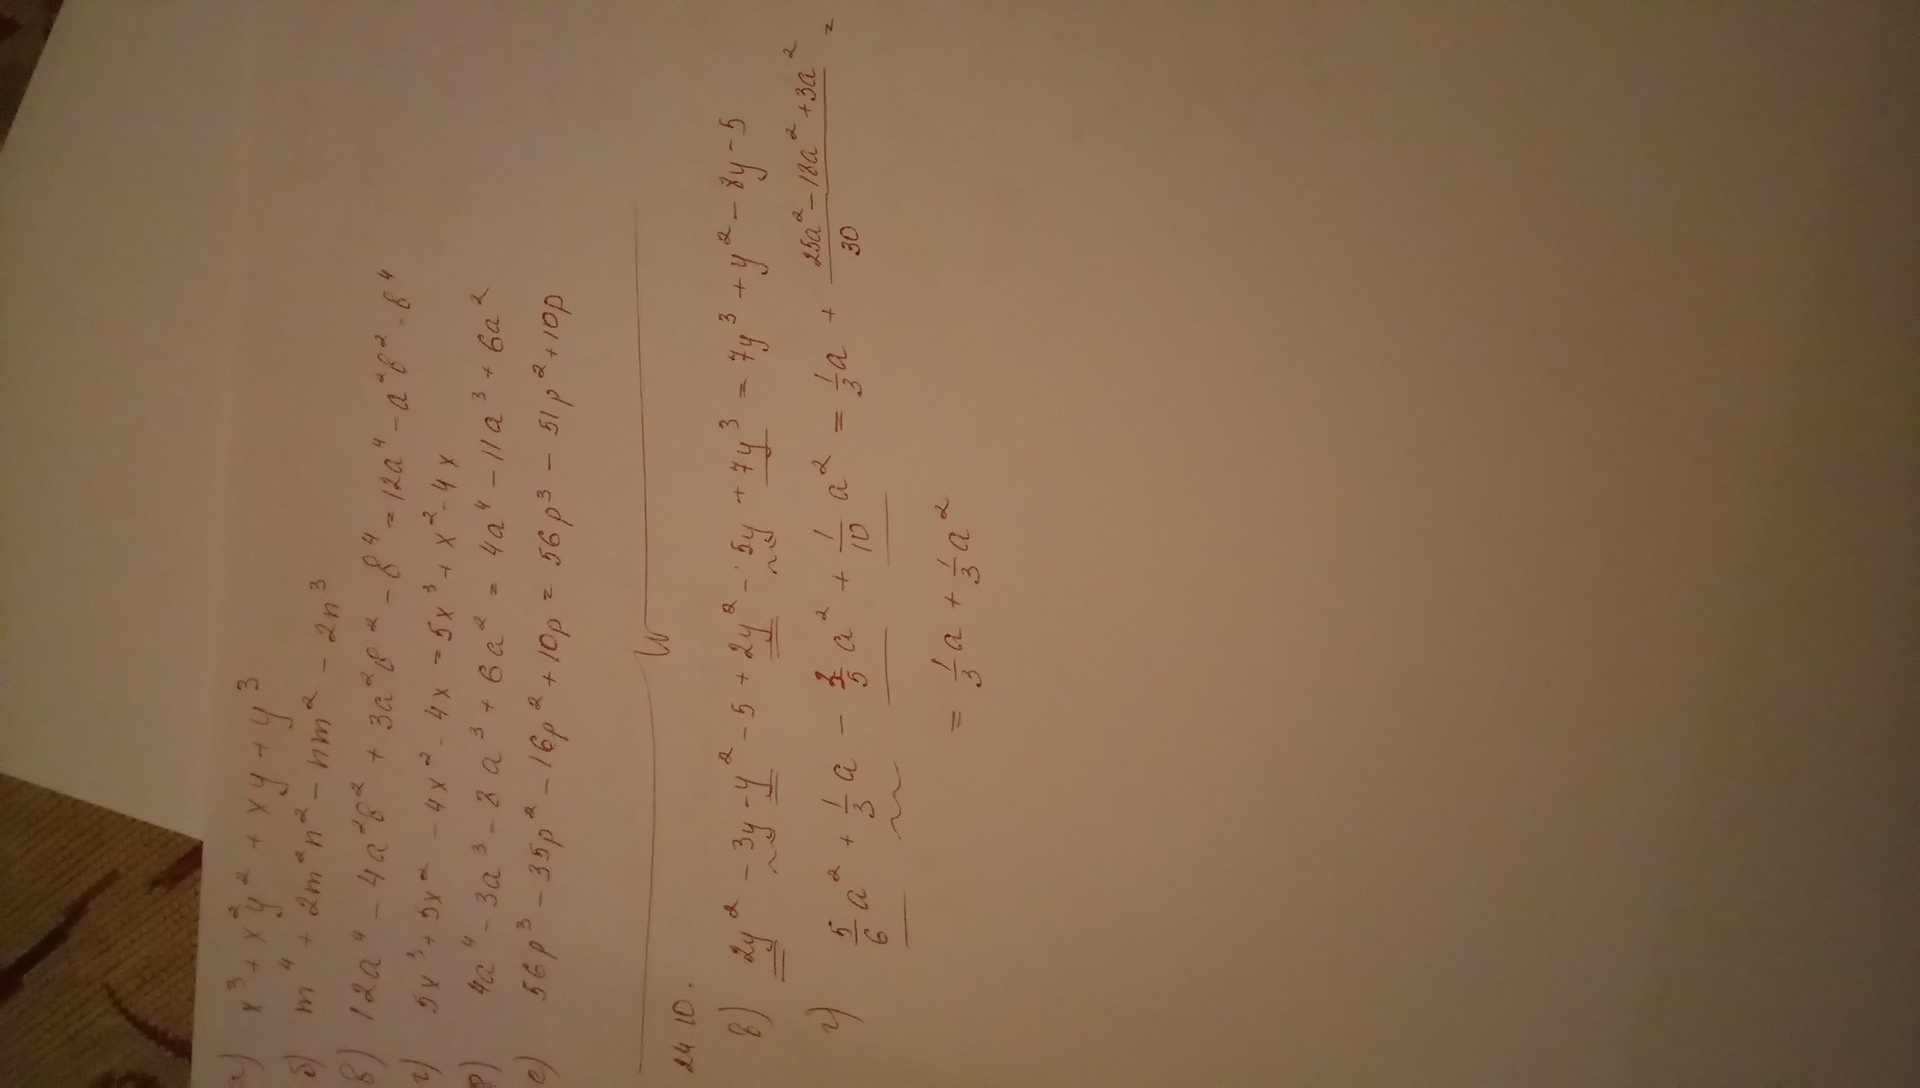 а) x³ + x²y² + xy + y³
б) m⁴ + 2m²n² - nm² - 2n³
в) 12a⁴ - 4a²в² + 3a²в² - в⁴ = 12a⁴ - a²в² - в⁴
г) 5x³ + 5x² - 4x² - 4x = 5x³ + x² - 4x
д) 4a⁴ - 3a³ - 8a³ + 6a² = 4a⁴ - 11a³ + 6a²
е) 56p³ - 35p² - 16p² + 10p = 56p³ - 51p² + 10p
24.10.
в) 2y² - 3y - y² - 5 + 2y² - 5y + 7y³ = 7y³ + y² - 8y - 5
г) 5/6 a² + 1/3 a - 3/5 a² + 1/10 a² = 1/3 a + (25a² - 18a² + 3a²)/30 =
= 1/3 a + 1/3 a²